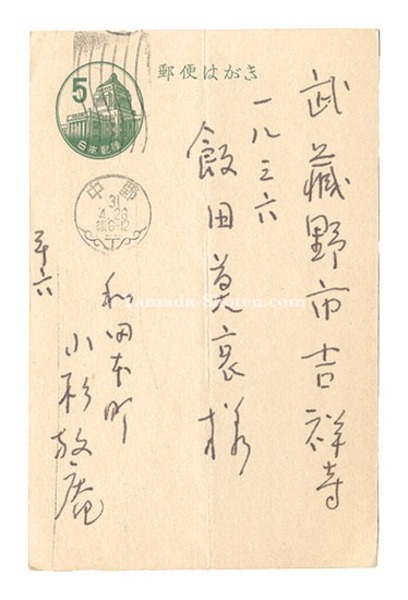 郵便はがき
5
日本郵便
中野
31
4.28
後6-12
武蔵野市吉祥寺
一八三六
飯田莫哀様
和田本町
小杉放庵
Yamada-Shoten.com